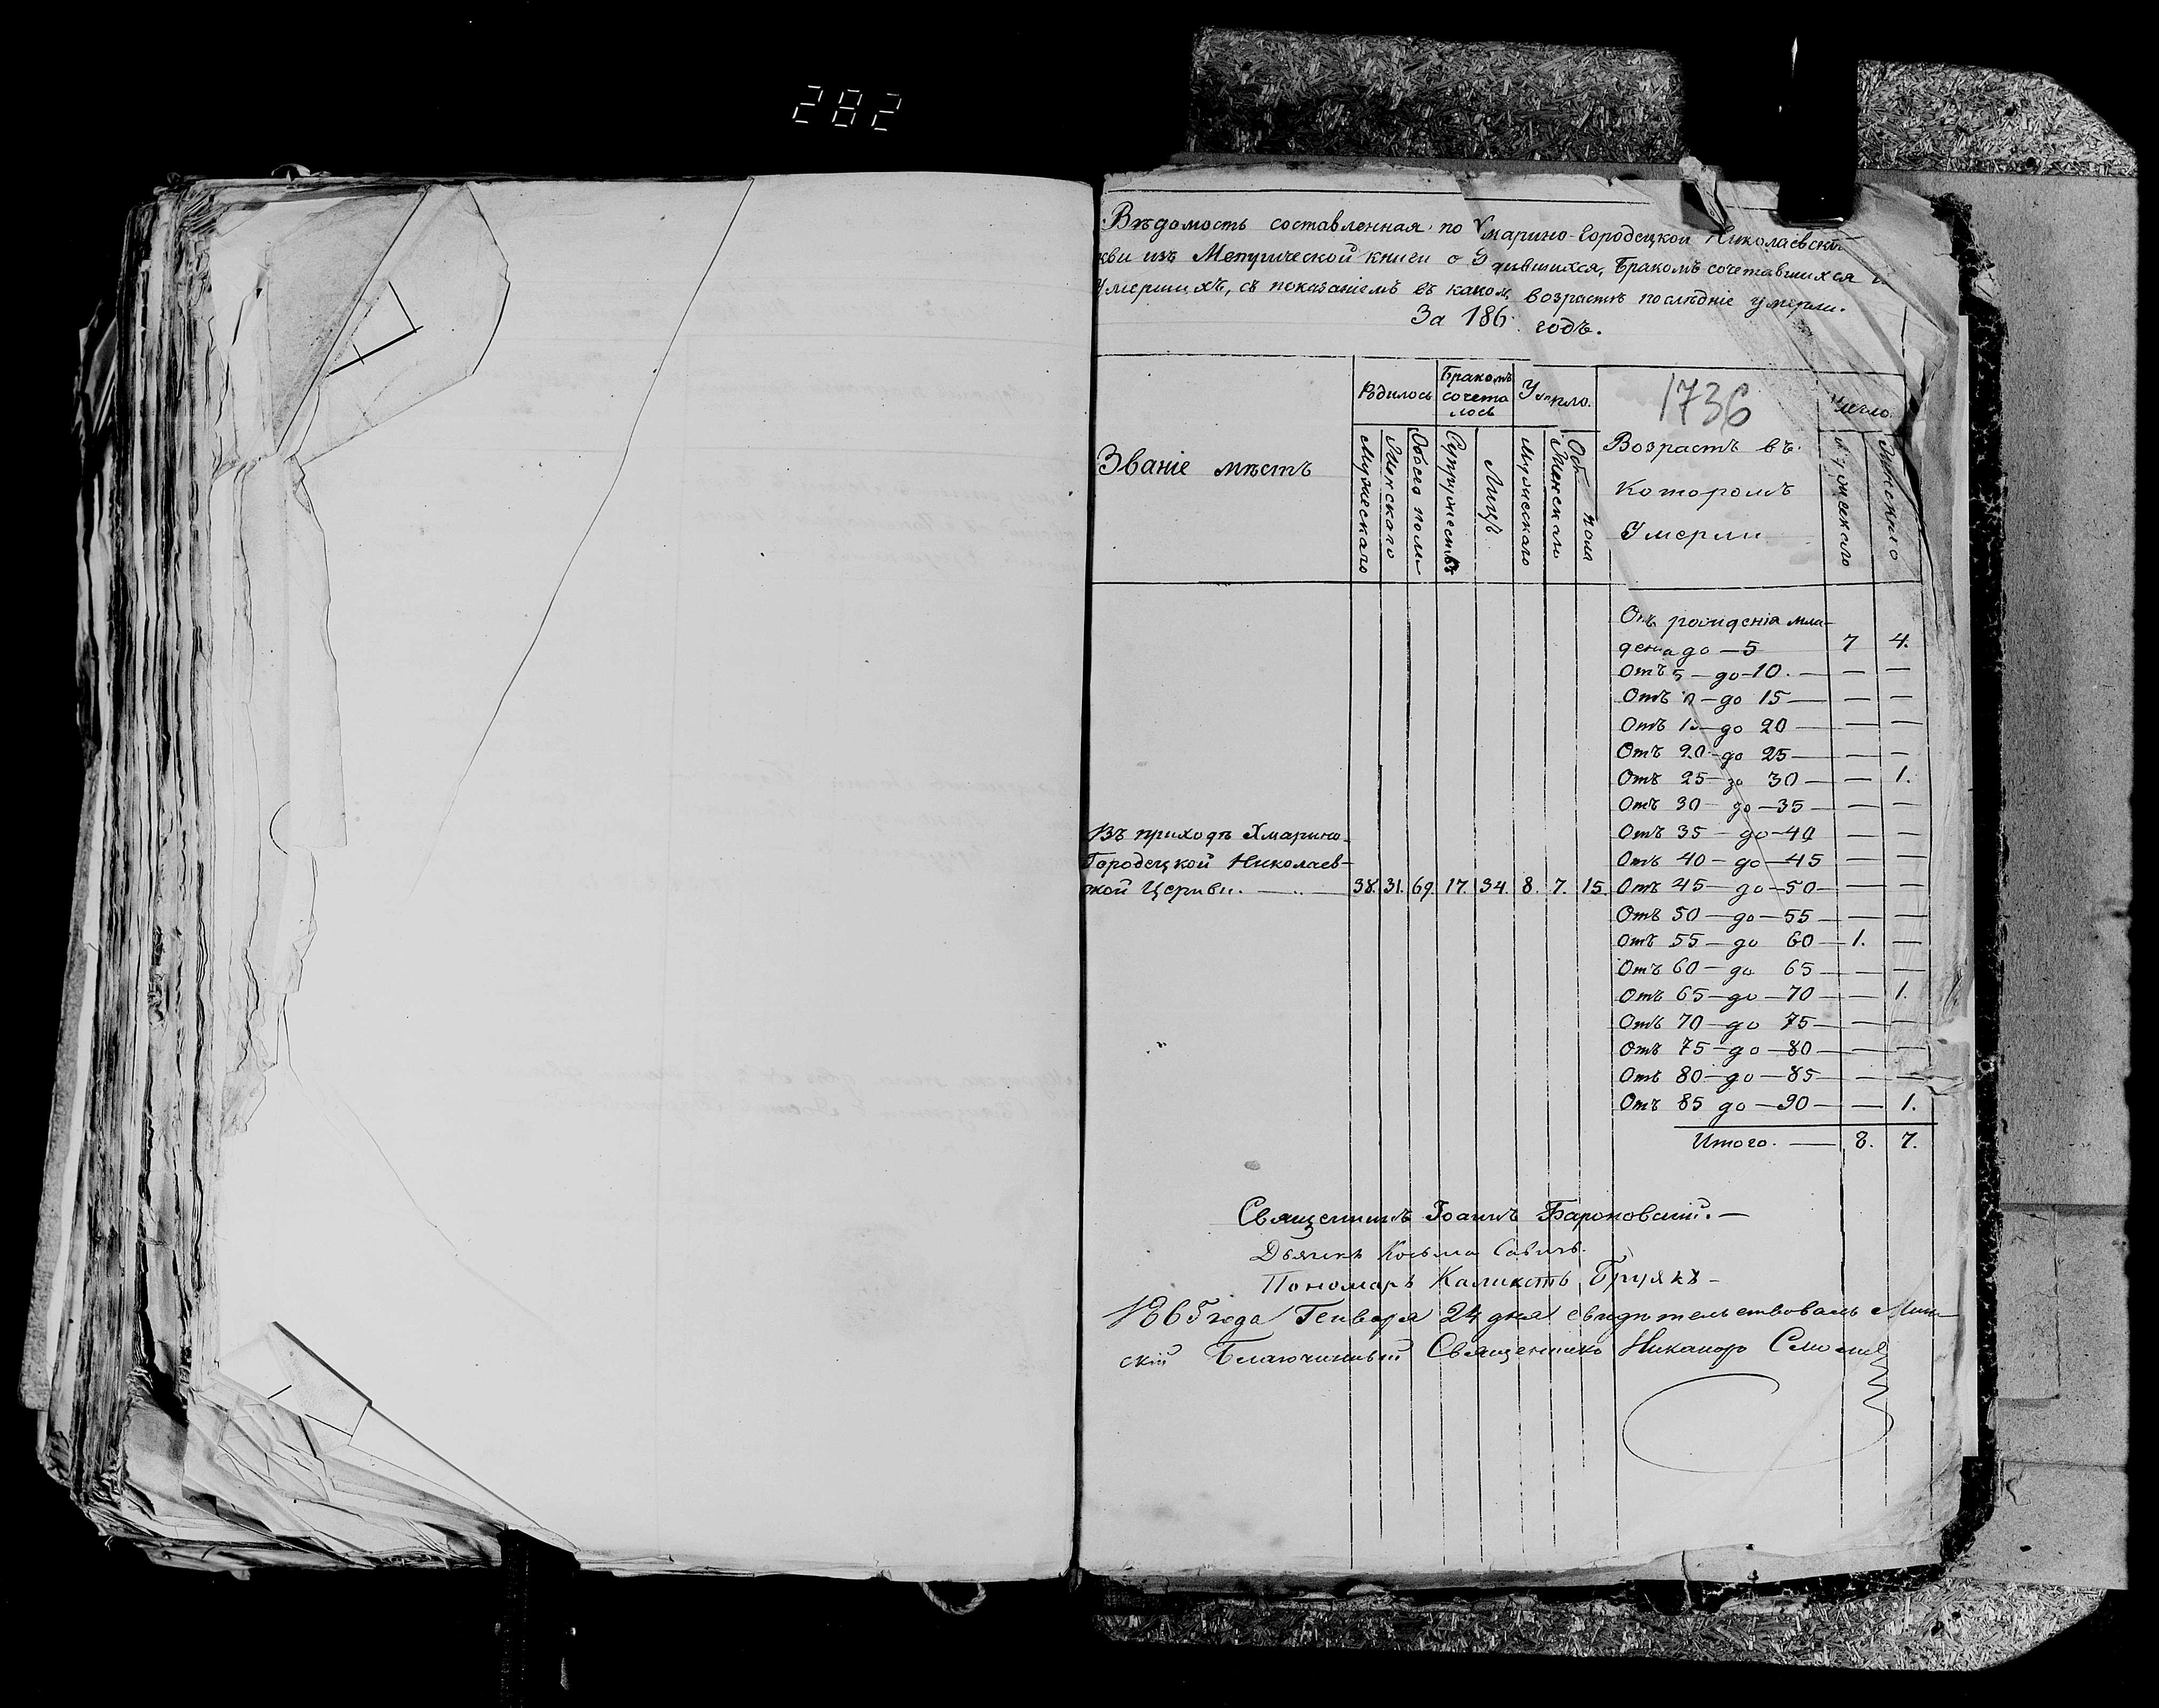 282
Вѣдомость составленная по Хмарино-Городецкой Николаевской
кви изъ Метрической книги о
Бракомъ сочетавшихся и
Умершихъ, съ показаніемъ въ какомъ возрастѣ послѣдніе умерли.
За 186 годъ.
1736
Званіе мѣстъ
Рдилось
Бракомъ
сочета
лось
Умрло.
Число.
Мужескаго
Женскаго
Обоего пола
Супружествъ
Лицъ
Мужескаго
Женскаго
Об пола
Возрастъ въ
которомъ
Умерли
Мужескаго
Женскаго
Отъ рожденія мла-
денца до — 5 7 4.
Отъ 5 — до — 10. — — —
Отъ 0 — до 15 — — —
Отъ 15 — до 20 — —
Отъ 20 — до 25 — — —
Отъ 25 — до 30 — — 1.
Отъ 30 — до — 35 — — —
Отъ 35 — до — 40 — —
Отъ 40 — до — 45 — —
Въ приходѣ Хмарино-
Городецкой Николаев-
ской Церкви. — 38. 31. 69. 17. 34. 8. 7. 15. Отъ 45 — до — 50 — — —
Отъ 50 — до — 55 — — —
Отъ 55 — до 60 — 1. —
Отъ 60 — до 65 — — —
Отъ 65 — до — 70 — — 1.
Отъ 70 — до 75 — — —
Отъ 75 — до — 80 — — —
Отъ 80 — до — 85 — — —
Отъ 85 до — 90 — — 1.
Итого. — 8. 7.
Священникъ Іоаннъ Бароновскій. —
Дьячекъ Косьма Савичъ.
Пономарь Каликстъ Бруякъ —
1865 года Генваря 24 дня свидѣтельствовалъ Мин-
скій Благочинный Священникъ Никаноръ